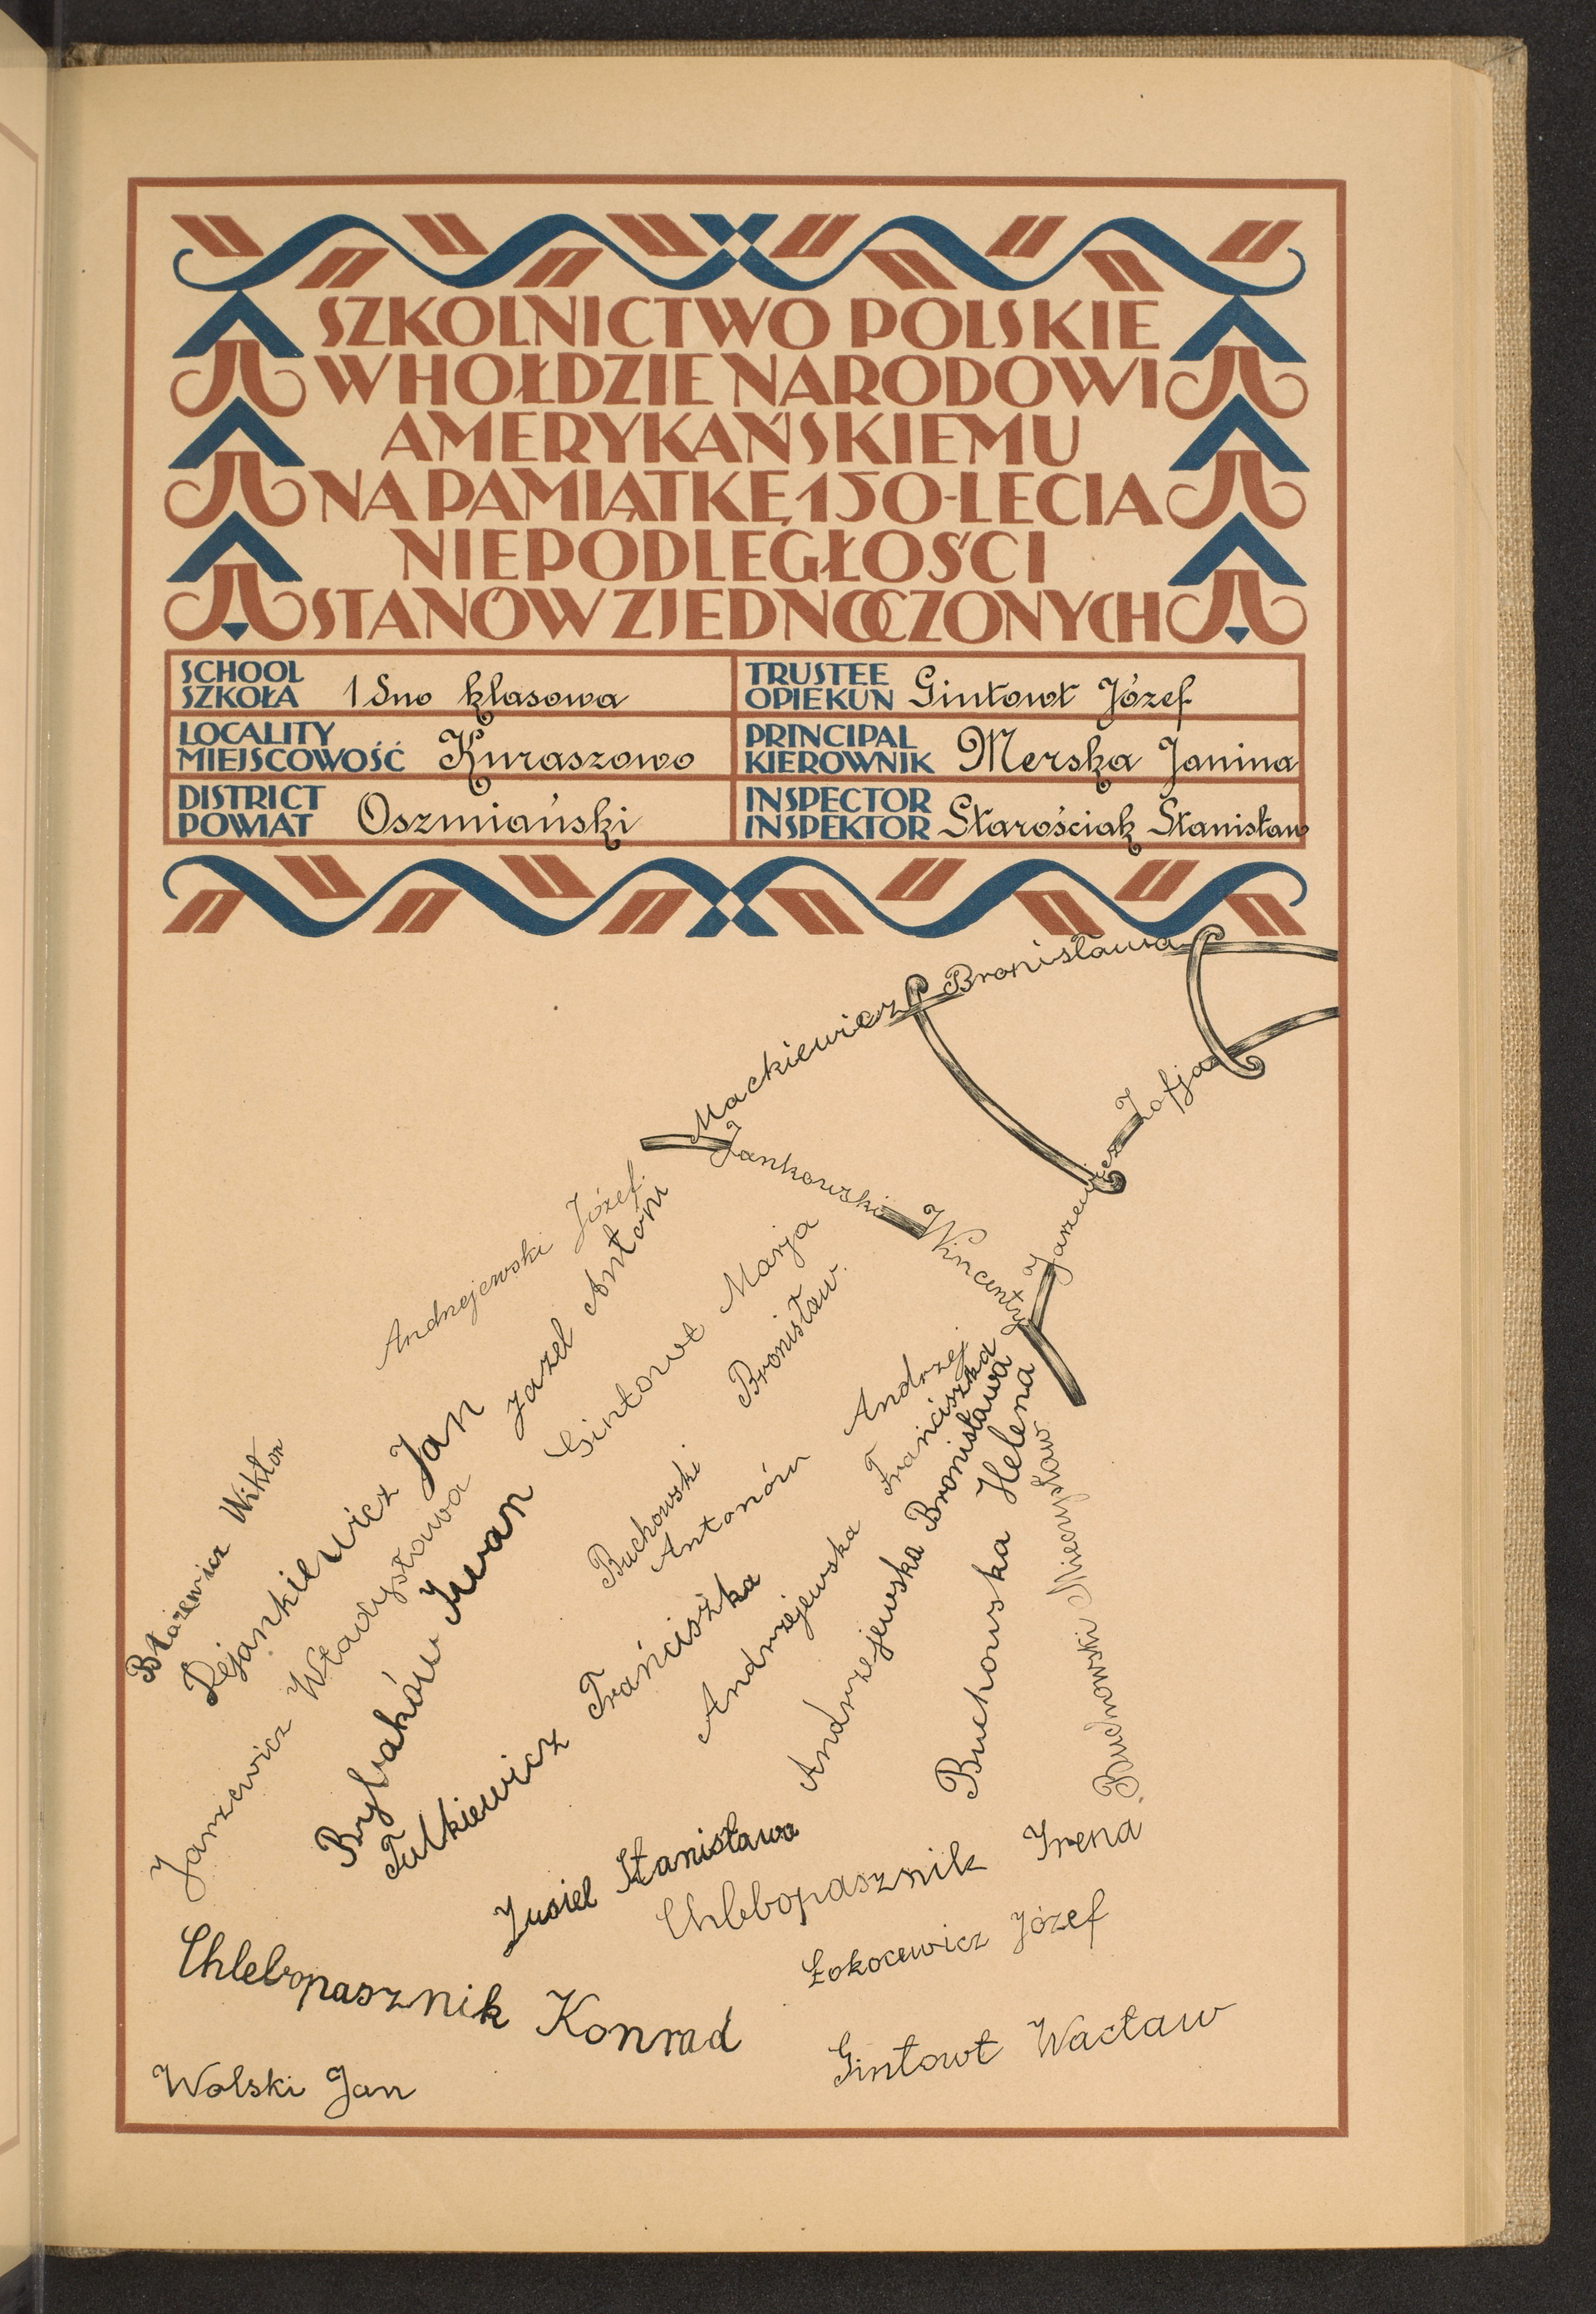 SZKOLNICTWO POLSKIE
W HOŁDZIE NARODOWI
AMERYKAŃSKIEMU
NA PAMIĄTKĘ 150-LECIA
NIEPODLEGŁOŚCI
STANÓW ZJEDNOCZONYCH
SCHOOL
SZKOŁA 1 Sno klasowa
TRUSTEE
OPIEKUN Gintowt Józef
LOCALITY
MIEJSCOWOŚĆ Kuraszowo
PRINCIPAL
KIEROWNIK Merska Janina
DISTRICT
POWIAT Oszmiański
INSPECTOR
INSPEKTOR Starościak Stanisław
Mackiewicz Bronisława
Jankowski Wincenty
Jarzewicz Zofja
Andrzejewski Józef.
Jazel Antoni
Gintowt Marja
Buchowski Bronisław.
Antonów Andrzej
Andrzejewska Franciszka
Andrzejewska Bronisława
Buchowska Helena
Buchowski Mieczysław
Błażewicz Wiktor
Rejankiewicz Jan
Jarzewicz Władysława
Rybaków Iwan
Fulkiewicz Franciszka
Zusiel Stanisława
Chlebopasznik Irena
Chlebopasznik Konrad
Łokocewicz Józef
Gintowt Wacław
Wolski Jan